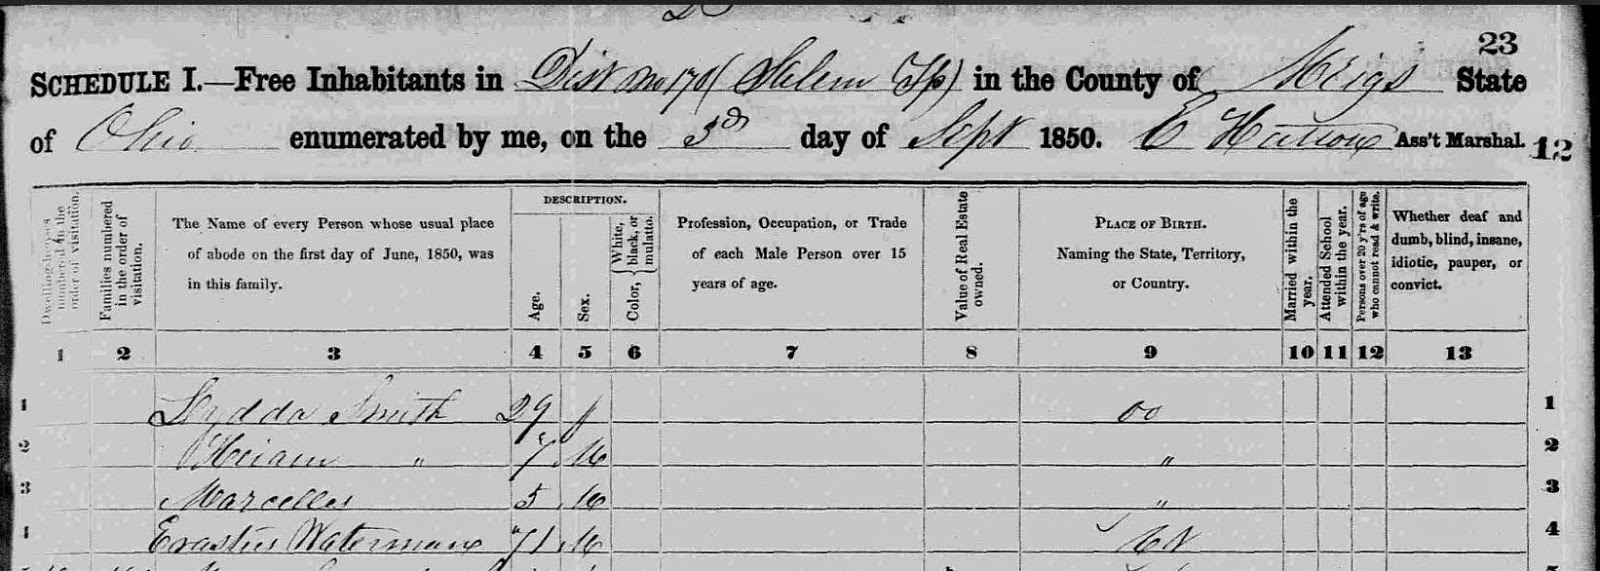 23
SCHEDULE I.—Free Inhabitants in Dist No 170 (Salem Tp) in the County of Meigs State
of Ohio enumerated by me, on the 3d day of Sept 1850. E Ass't Marshal. 12
Dwelling-houses numbered in the order of visitation.
Families numbered in the order of visitation.
The Name of every Person whose usual place
of abode on the first day of June, 1850, was
in this family.
DESCRIPTION.
Age.
Sex.
Color, { White, black, or mulatto.
Profession, Occupation, or Trade
of each Male Person over 15
years of age.
Value of Real Estate owned.
PLACE OF BIRTH.
Naming the State, Territory,
or Country.
Married within the year.
Attended School within the year.
Persons over 20 y'rs of age who cannot read & write.
Whether deaf and
dumb, blind, insane,
idiotic, pauper, or
convict.
1 2 3 4 5 6 7 8 9 10 11 12 13
1 Lydda Smith 29 f 1
2 Hiram " 7 M " 2
3 Marcellus 5 M " 3
4 Erastus Waterman 71 M 4